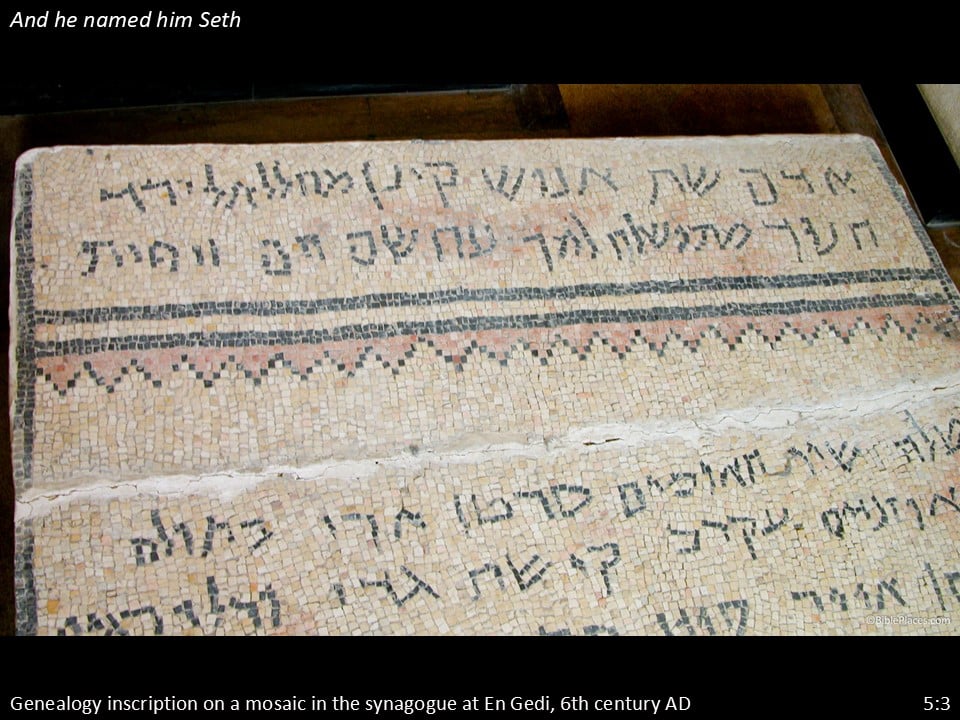 And he named him Seth
אדם שת אנוש קינן מהללאל ירד
חנוך מתושלח למך נח שם חם ויפת
שור תאומים סרטן ארי בתולה
עקרב קשת גדי ודלי
אייר
©BiblePlaces.com
Genealogy inscription on a mosaic in the synagogue at En Gedi, 6th century AD 5:3